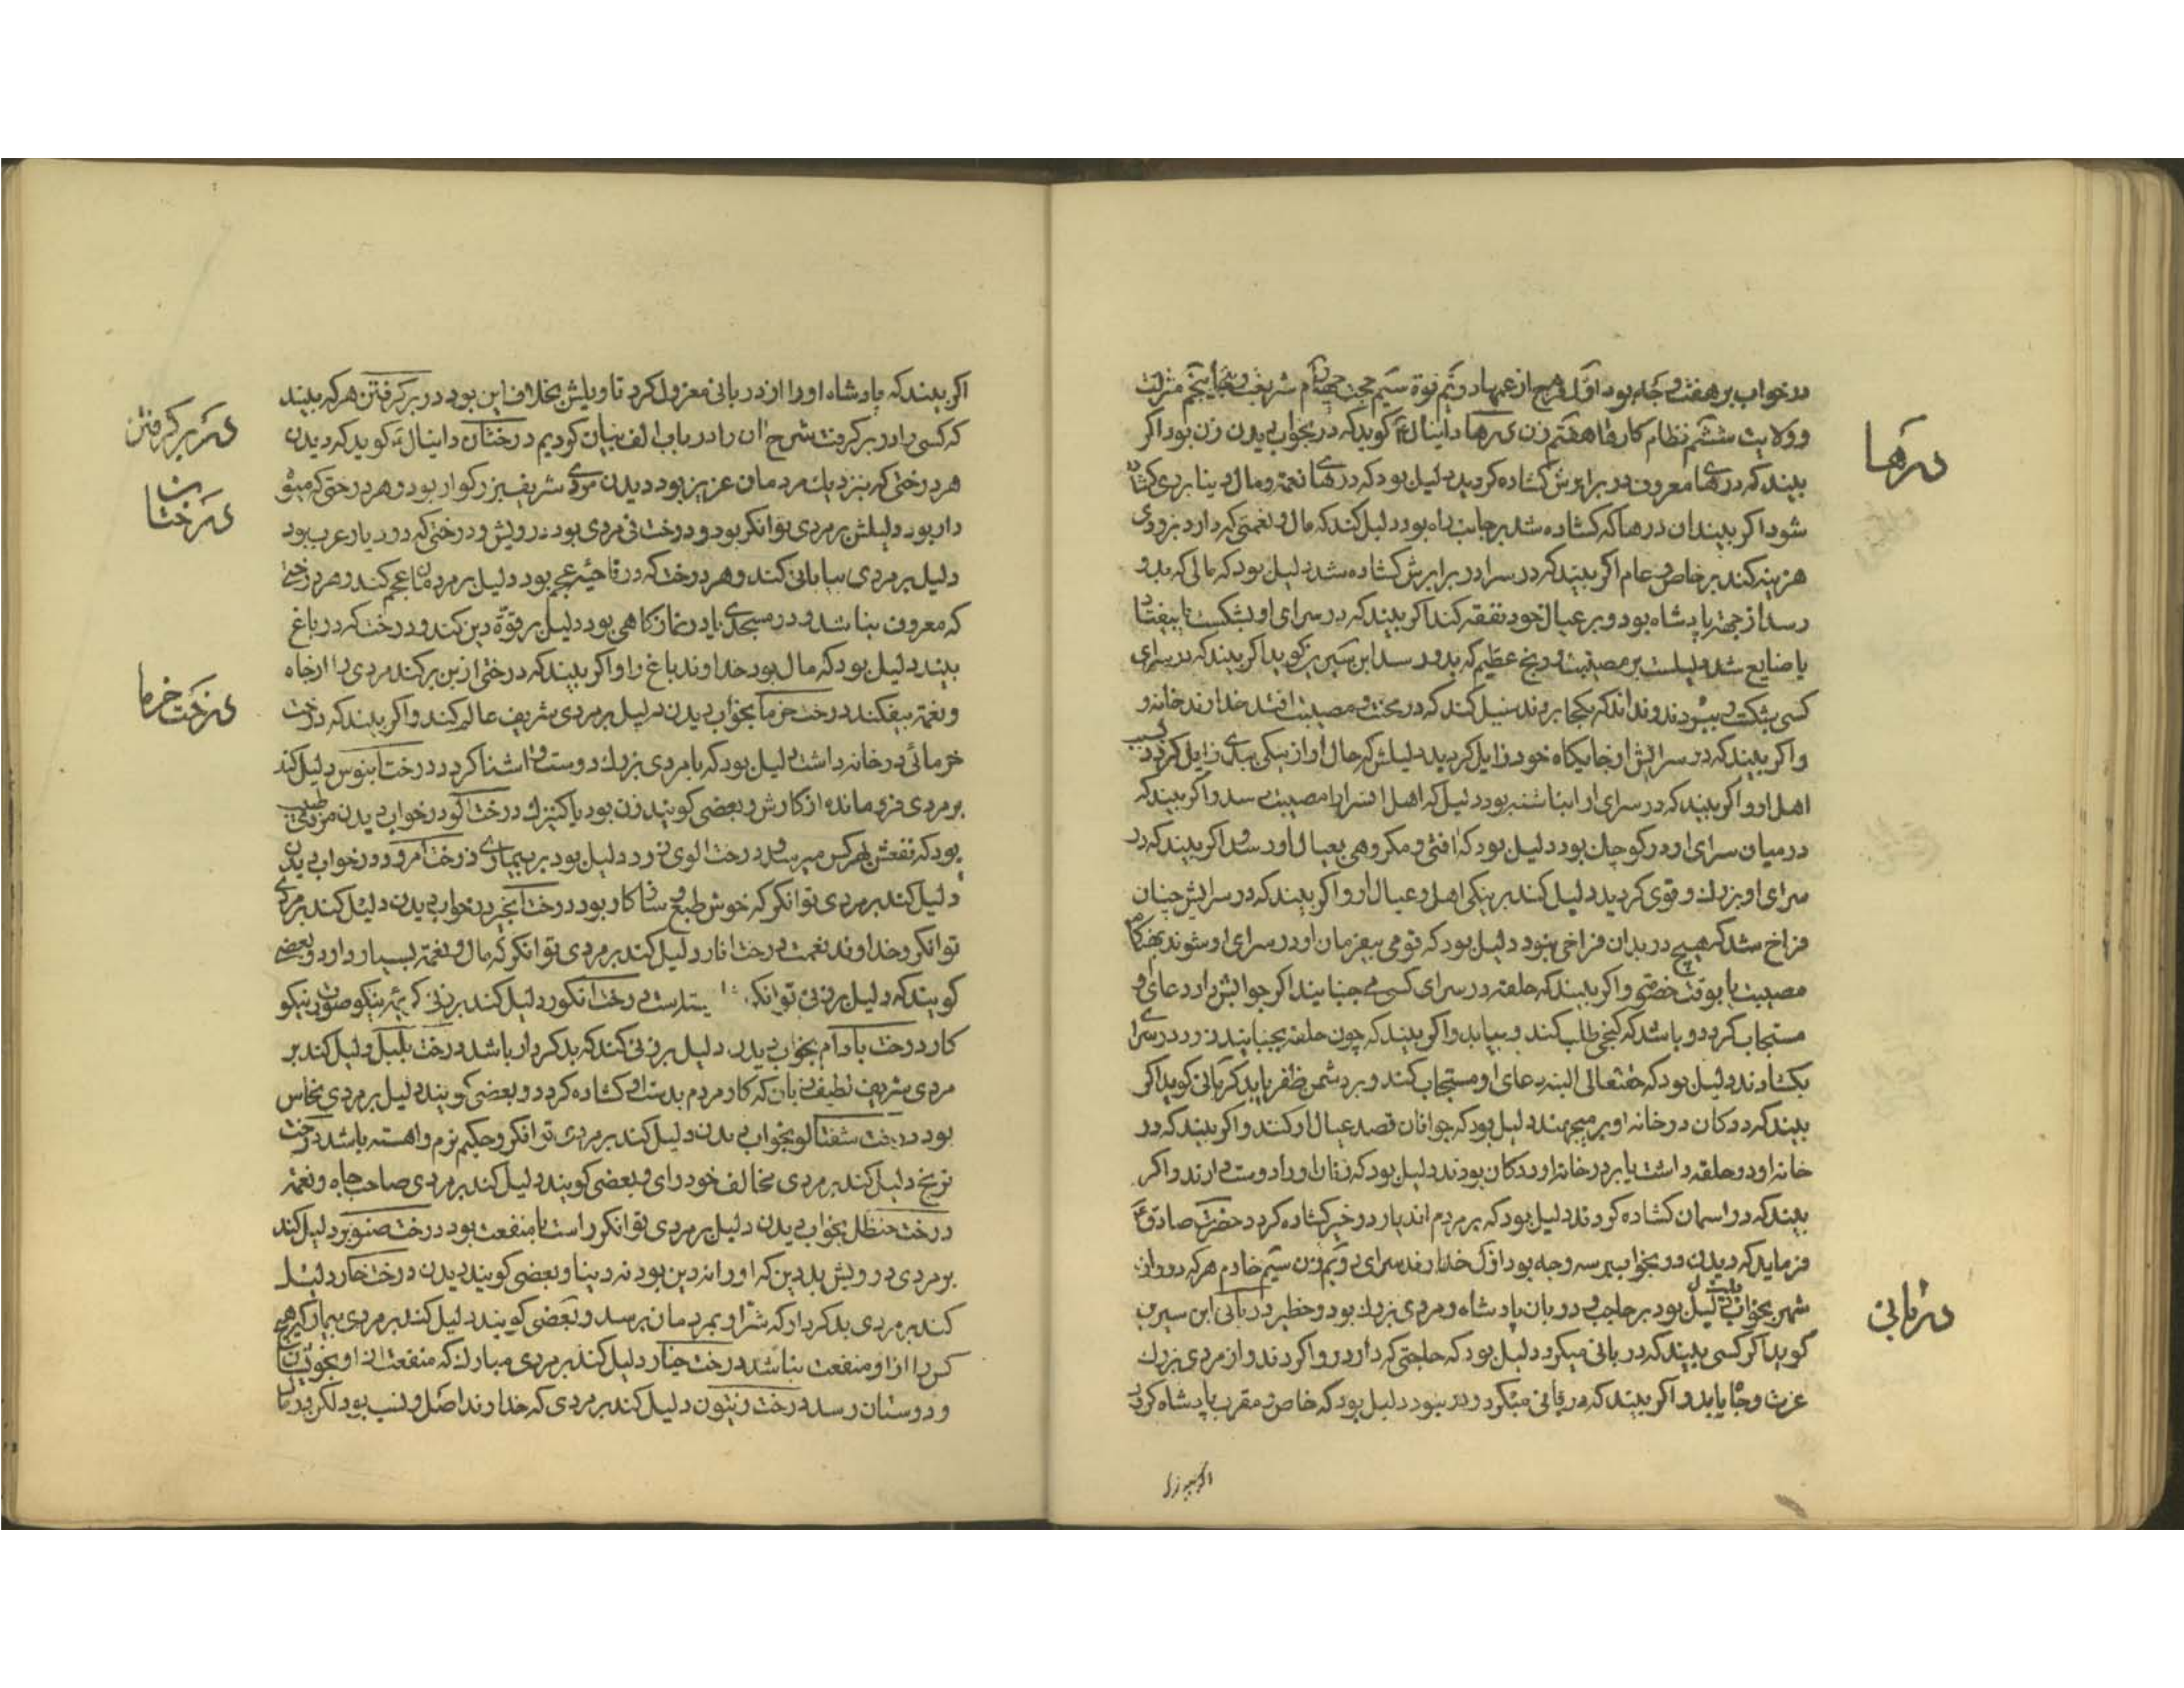 درخواب بر هفت وجه بود اول فرج از غمها دویم قوة سیم حجت چهارم شرف و جاه پنجم منزلت
و ولایت ششم نظام کارها هفتم زن درها دانیال ع کوید که در بخواب دیدن زن بود اکر
بیند که درهای معروف در برابرش کشاده کردید دلیل بود که درهای نعمة و مال دینا بر وی کشاده
شود اکر بیند ان درها که کشاده شد بر جانب راه بود دلیل کند که مال و نعمتی که دارد بزودی
هزینه کند بر خاص و عام اکر بیند که در سرا در برابرش کشاده شد دلیل بود که مالی که بدو
رسد از جهة پادشاه بود و بر عیال خود نفقه کند اکر بیند که در سرای او بشکست یا بیفتاد
یا ضایع شد دلیلست بر مصیبت و رنج عظیم که بدو رسد ابن سیرین کوید اکر بیند که در سرای
کسی بشکست و ببردند و نداند که بکجا بردند دلیل کند که در محنت و مصیبت افتد خداوند خانه و
و اکر بیند که در سرایش از جایکاه خود زایل کردید دلیلش که حال او از نیکی ببدی زایل کردد
اهل او و اکر بیند که در سرای او انباشته بود دلیل که اهل انسرا را مصیبت رسد و اکر بیند که
در میان سرای او در کوچك بود دلیل بود که افتی و مکروهی بعیال او رسد و اکر بیند که در
سرای او بزرك و قوی کردید دلیل کند بر نیکی اهل و عیال او و اکر بیند که در سرایش چنان
فراخ شد که هیچ در بدان فراخی نبود دلیل بود که قومی بیفرمان او در سرای او شوند بهنکام
مصیبت یا بوقت خصومتی و اکر بیند که حلقه در سرای کسی می جنبانید اکر جوابش داد دعای او
مستجاب کردد و باشد که کنجی طلب کند و بیابد و اکر بیند که چون حلقه بجنبانیدن زود در سرای
بکشادند دلیل بود که حقتعالی البته دعای او مستجاب کند و بر دشمن ظفر یابد کرمانی کوید اکر
بیند که دو کان در خانه او بر میجهند دلیل بود که جوانان قصد عیال او کنند و اکر بیند که در
خانه او دو حلقه داشت یا بر در خانه او دکان بودند دلیل بود که زنان او را دوست دارند و اکر
بیند که در اسمان کشاده کردند دلیل بود که بر مردم اندیار در خیر کشاده کردد حضرت صادق ع
فرماید که دیدن در بخواب بر سه وجه بود اول خداوند سرای دویم زن سیم خادم هرکه دروازه
شهر بخواب بیند دلیل بود بر حاجب و دربان پادشاه و مردی بزرك بود و خطیر دربانی ابن سیرین
کوید اکر کسی بیند که دربانی میکرد دلیل بود که حاجتی که دارد روا کردند و از مردی بزرك
عزت و جاه یابد و اکر بیند که دربانی میکرد و در نبود دلیل بود که خاص و مقرب پادشاه کردد
درها
دربانی
اکر بیند که پادشاه او را از دربانی معزول کرد تاویلش بخلاف این بود در بر کرفتن هرکه بیند
که کسی را در بر کرفت شرح ان را در باب الف بیان کردیم درختان دانیال ع کوید که دیدن
هر درختی که بنزدیك مردمان عزیز بود دیدن مردی شریف بزرکوار بود و هر درختی که میوه
دار بود دلیلش بر مردی توانکر بود و درخت نی مردی بود درویش و درختی که در دیار عرب بود
دلیل بر مردی بیابانی کند و هر درخت که در ناحیه عجم بود دلیل بر مردمان عجم کند و هر درختی
که معروف نباشد و در مسجدی یا در نمازکاهی بود دلیل بر قوة دین کند و درخت که در باغ
بیند دلیل بود که مال بود خداوند باغ را و اکر بیند که درختی از بن بر کند مردی را از جاه
و نعمة بیفکند درخت خرما بخواب دیدن دلیل بر مردی شریف عالم کند و اکر بیند که درخت
خرمائی در خانه داشت دلیل بود که با مردی بزرك دوست و اشنا کردد درخت ابنوس دلیل کند
بر مردی فرو مانده از کارش و بعضی کویند زن بود یا کنیزك درخت اکو در خواب دیدن مردی طبیب
بود که نفعش بهر کس میرسد و درخت الوی زرد دلیل بود بر بیماری درخت امرود در خواب دیدن
دلیل کند بر مردی توانکر که خوش طبع و سازکار بود درخت انجیر در خواب دیدن دلیل کند بر مردی
توانکر و خداوند نعمت درخت انار دلیل کند بر مردی توانکر که مال و نعمة بسیار دارد و بعضی
کویند که دلیل بر زنی توانکر درخت انکور دلیل کند بر زنی نیکو صورت نیکو
کار درخت بادام بخواب دیدن دلیل بر زنی کند که بدکردار باشد درخت بلبل دلیل کند بر
مردی شریف لطیف زبان که کار مردم بدست او کشاده کردد و بعضی کویند دلیل بر مردی نخاس
بود درخت شفتالو بخواب دیدن دلیل کند بر مردی توانکر و حکیم نرم و اهسته باشد درخت
ترنج دلیل کند بر مردی مخالف خود رای و بعضی کویند دلیل کند بر مردی صاحب جاه و نعمة
درخت حنظل بخواب دیدن دلیل بر مردی توانکر راست با منفعت بود درخت صنوبر دلیل کند
بر مردی درویش بد دین که او را نه دین بود نه دینا و بعضی کویند دیدن درخت خار دلیل
کند بر مردی بدکردار که شر او بمردمان برسد و بعضی کویند دلیل کند بر مردی بیمار که هیچ
کس را از او منفعت نباشد درخت چنار دلیل کند بر مردی مبارك که منفعت از او بخویشان
و دوستان رسد درخت زیتون دلیل کند بر مردی که خداوند اصل و نسب بود لکن در مال
در بر کرفتن
درختان
درخت خرما